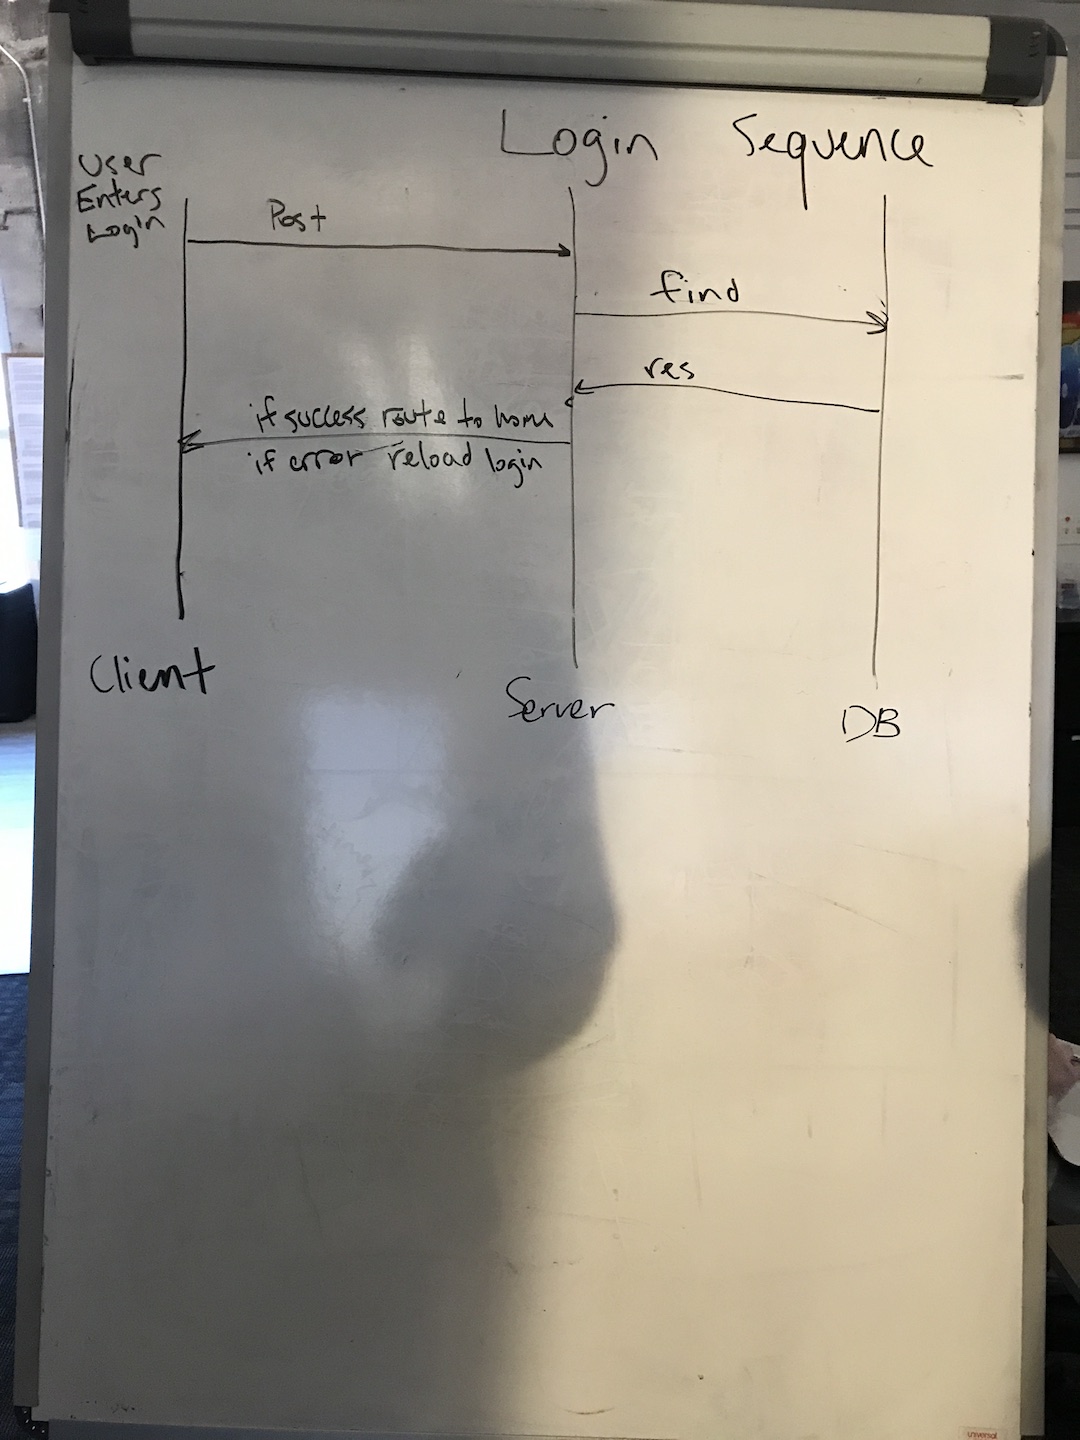 Login Sequence
User
Enters
Login
Post
find
res
if success route to home
if error reload login
Client
Server
DB
universal